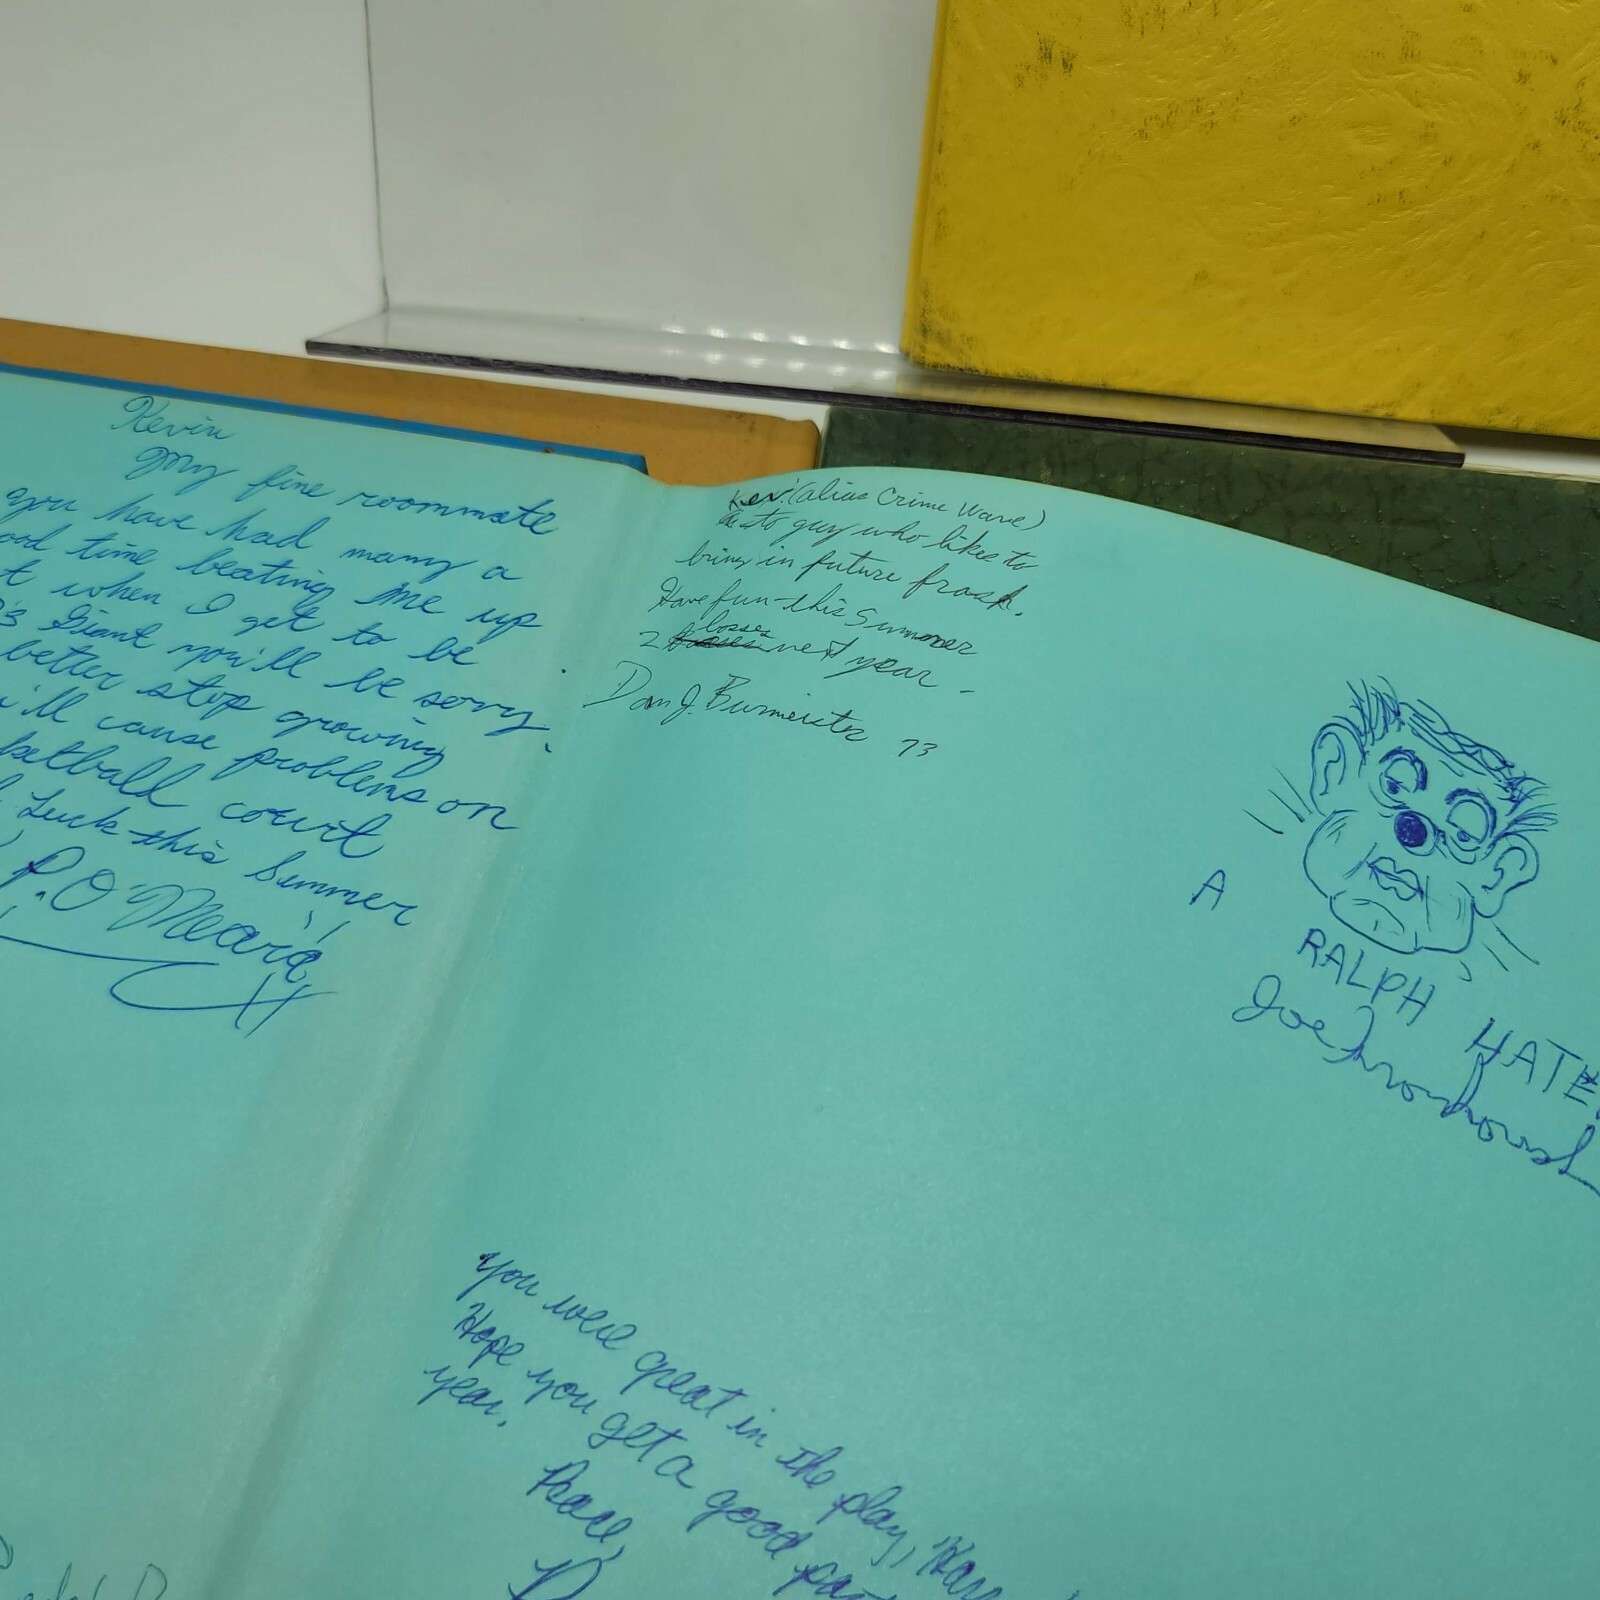 Kevin
My fine roommate
you have had many a
ood time beating me up
t when I get to be
Giant you'll be sorry.
better stop growing
'll cause problems on
ketball court
Luck this Summer
P. O'Meara
Kev: (alias Crime Wave)
to guy who likes to
bring in future frosh.
Have fun this Summer
2 losses next year -
Dan J. Burmeister 73
A
RALPH
HATE
Joe
you were great in the play,
Hope you get a good
year.
Peace,